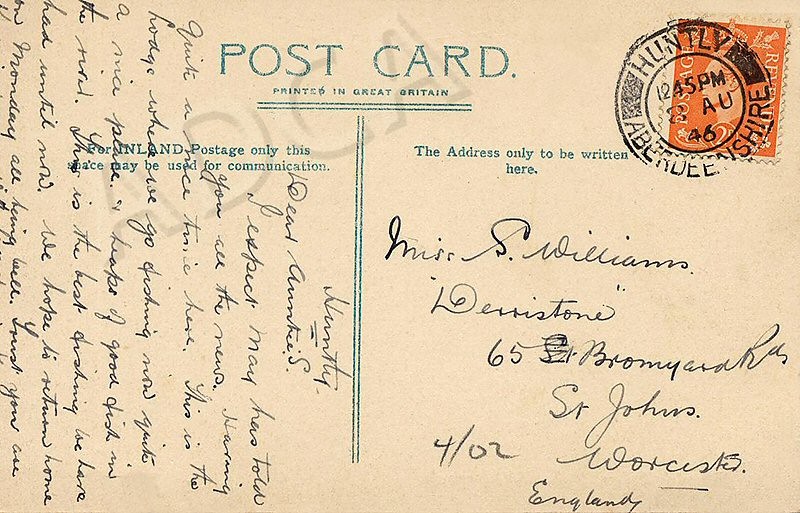 POST CARD.
PRINTED IN GREAT BRITAIN
For INLAND Postage only this
space may be used for communication.
The Address only to be written
here.
HUNTLY
1245PM
AU
46
ABERDEENSHIRE
POSTAGE
REVENUE
Huntly.
Dear Auntie S.
I expect May has told
you all the news. Having
Quite a nice time here. This is the
lodge where we go fishing now quite
a nice place & heaps of good fish in
the river. This is the best fishing we have
had until now. We hope to return home
on Monday all being well. Trust you are
Miss S. Williams.
"Derristone"
65 Bromyard Rd
St Johns.
Worcester.
England
4/02
ADCA